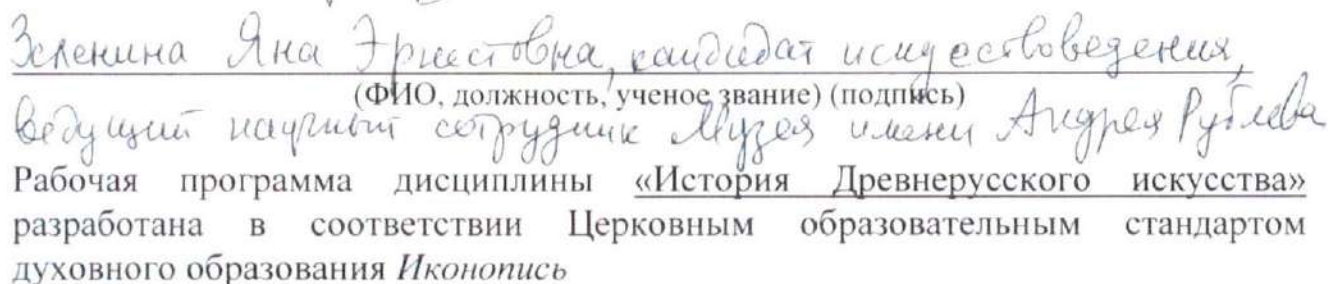 Зеленина Яна Эрнестовна, кандидат искусствоведения,
(ФИО, должность, ученое звание) (подпись)
ведущий научный сотрудник Музея имени Андрея Рублева
Рабочая программа дисциплины «История Древнерусского искусства»
разработана в соответствии Церковным образовательным стандартом
духовного образования Иконопись